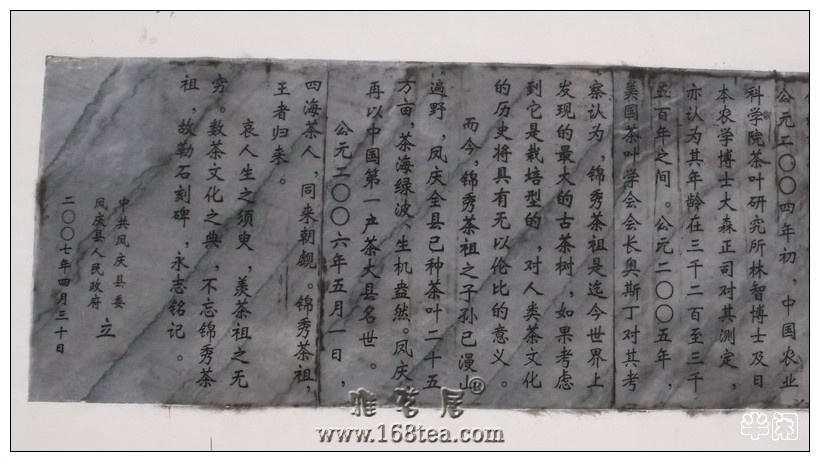 公元二〇〇四年初，中国农业
科学院茶叶研究所林智博士及日
本农学博士大森正司对其测定，
亦认为其年龄在三千二百至三千
五百年之间。公元二〇〇五年，
美国茶叶学会会长奥斯丁对其考
察认为，锦秀茶祖是迄今世界上
发现的最大的古茶树，如果考虑
到它是栽培型的，对人类茶文化
的历史将具有无以伦比的意义。
而今，锦秀茶祖之子孙已漫山
遍野，凤庆全县已种茶叶二千五
万亩，茶海绿波、生机盎然。凤庆
再以中国第一产茶大县名世。
公元二〇〇六年五月一日，
四海茶人，同来朝觑。锦秀茶祖，
王者归来。
哀人生之须臾，羡茶祖之无
穷。数茶文化之典，不忘锦秀茶
祖，故勒石刻碑，永志铭记。
中共凤庆县委
凤庆县人民政府 立
二〇〇七年四月三十日
雅茗居®
www.168tea.com
半闲